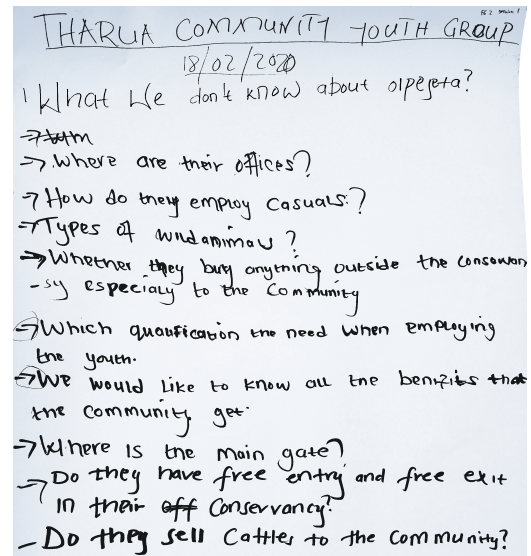 THARUA COMMUNITY YOUTH GROUP
18/02/2020
1 What We don't know about olpejeta?
→ Where are their offices?
→ How do they employ casuals?
→ Types of wildanimals?
→ Whether they buy anything outside the conservan
- sy especialy to the Community
→ Which quanfication the need when employing
the youth.
→ We would like to know all the benefits that
the community get.
→ Where is the main gate?
→ Do they have free entry and free exit
in their off Conservancy?
- Do they sell Cattles to the Community?